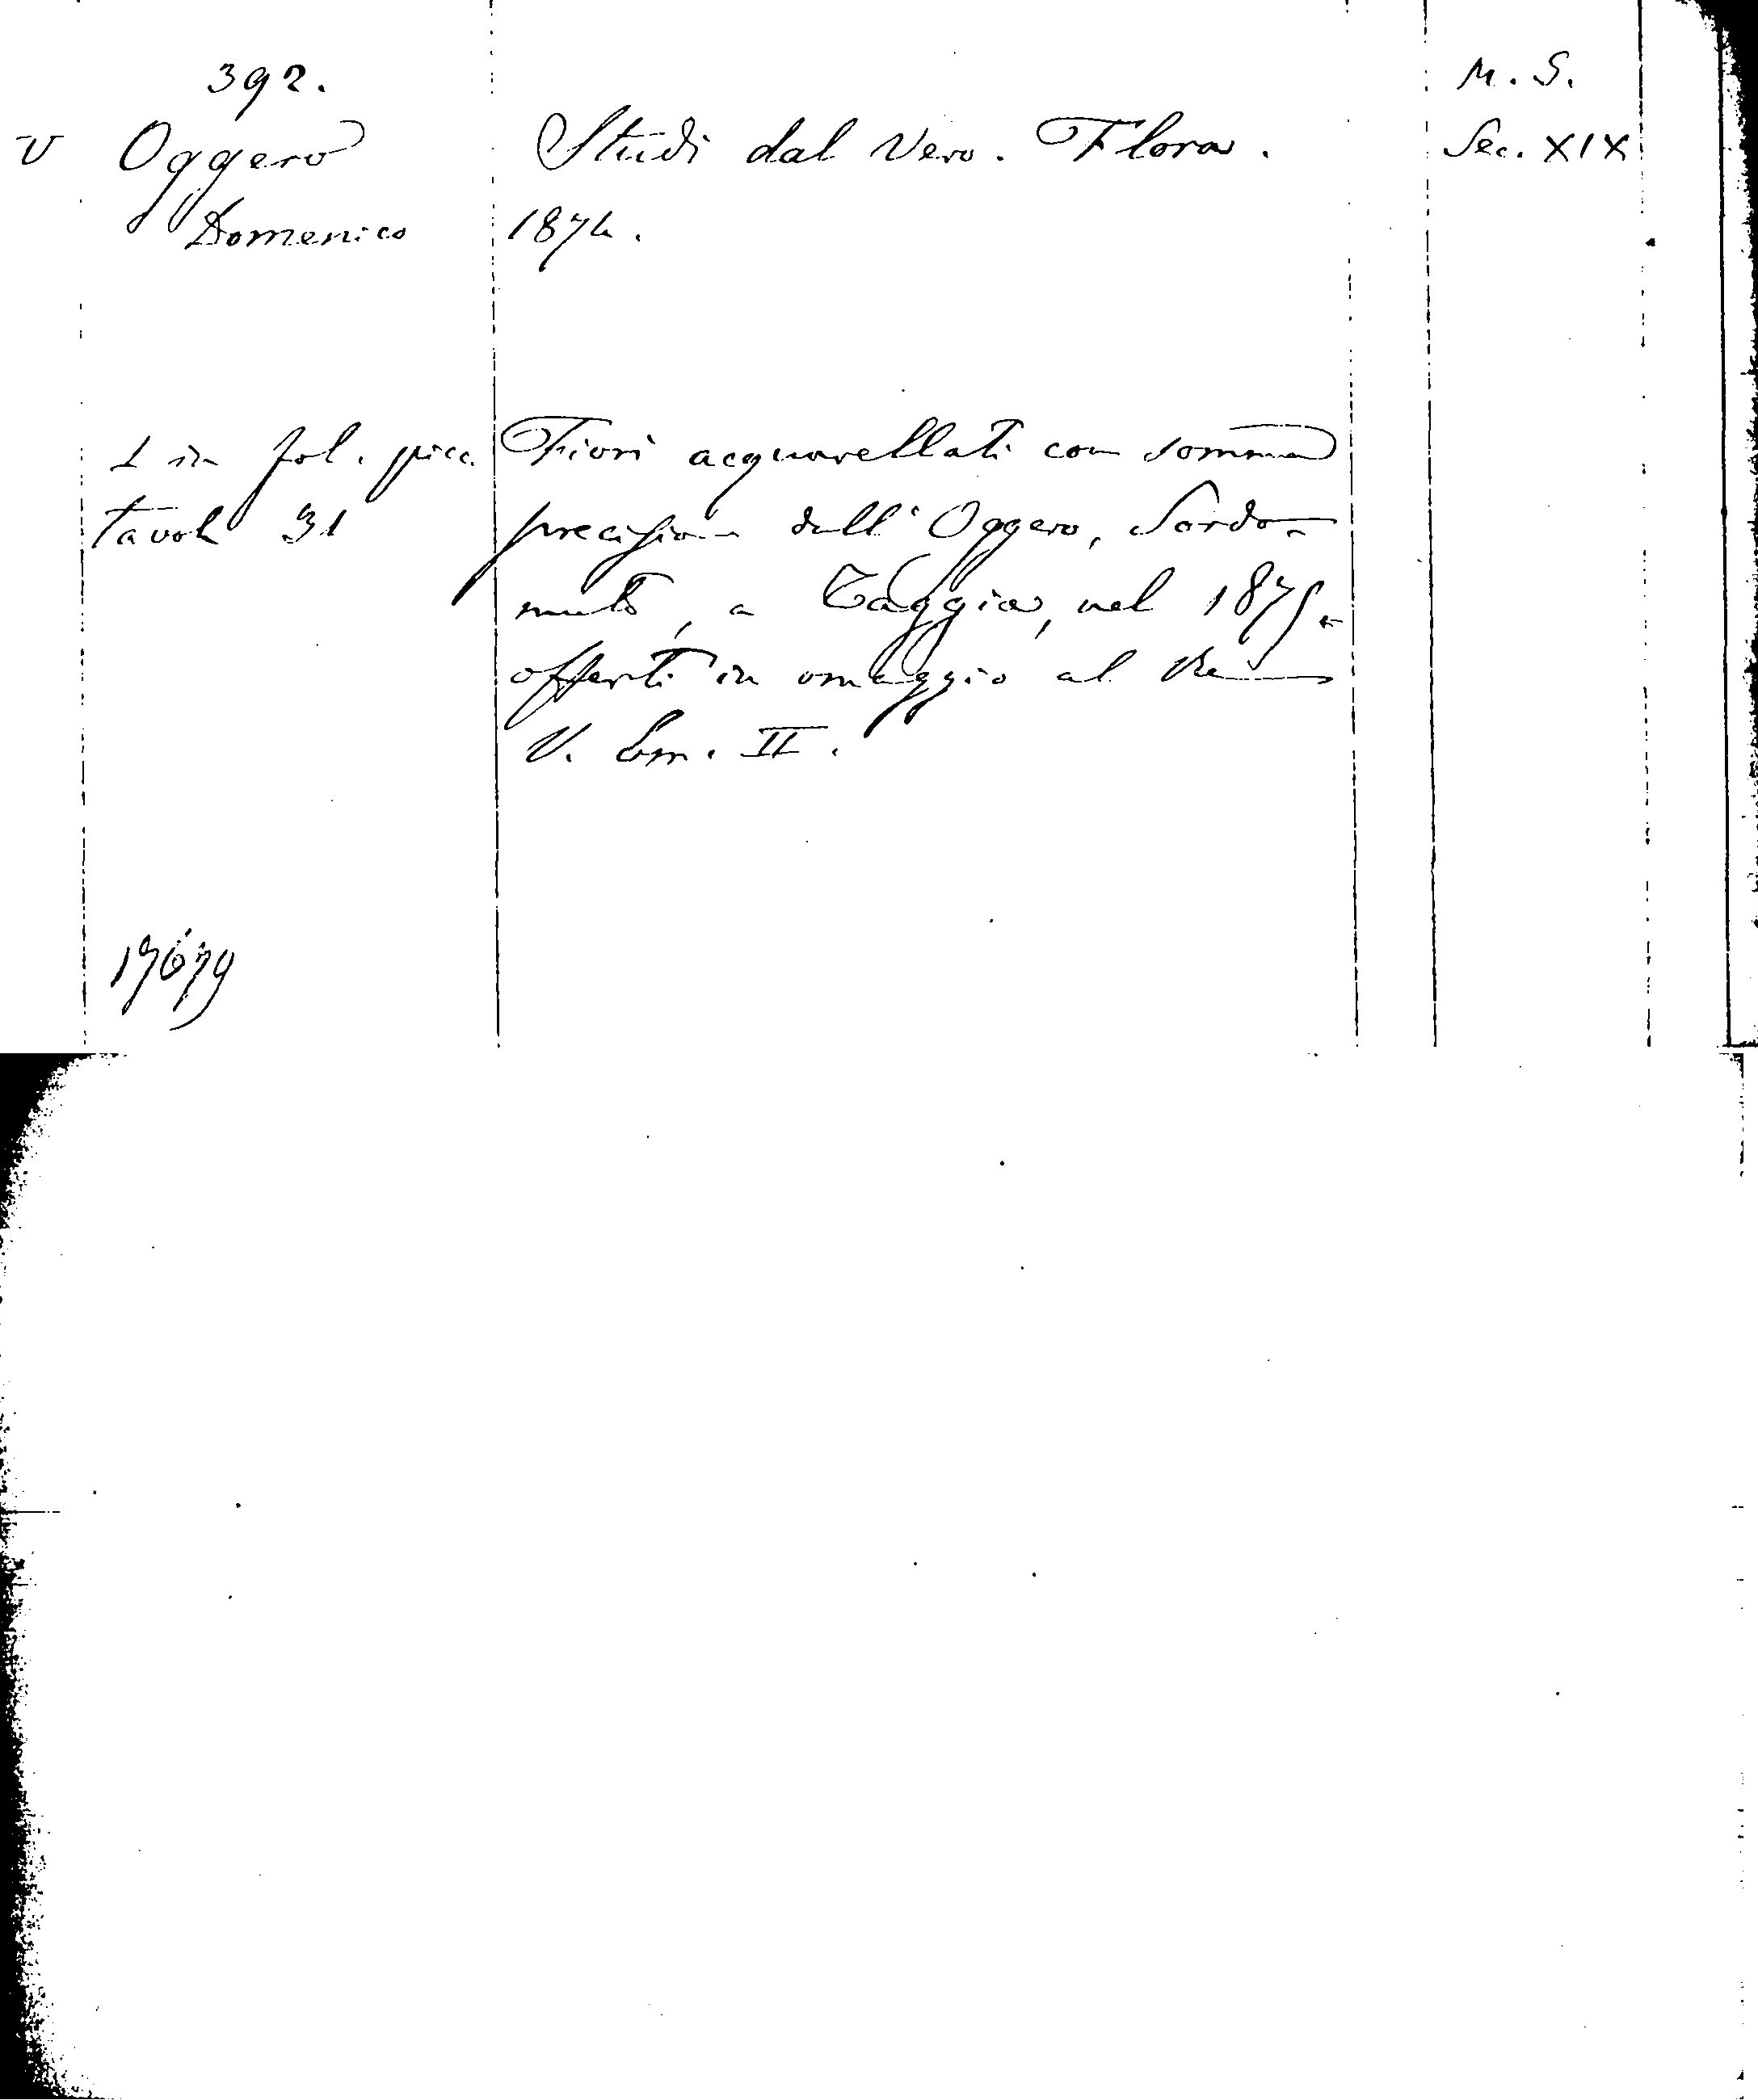 392.
M. S.
V Oggero
Studi dal Vero. Flora.
Sec. XIX
Domenico
1874.
1 in fol. picc.
Fiori acquarellati con somma
tavole 31
precisione dall'Oggero, Sordo-
muto, a Taggia, nel 1875 e
offerti in omaggio al Re
V. Em. II.
17679